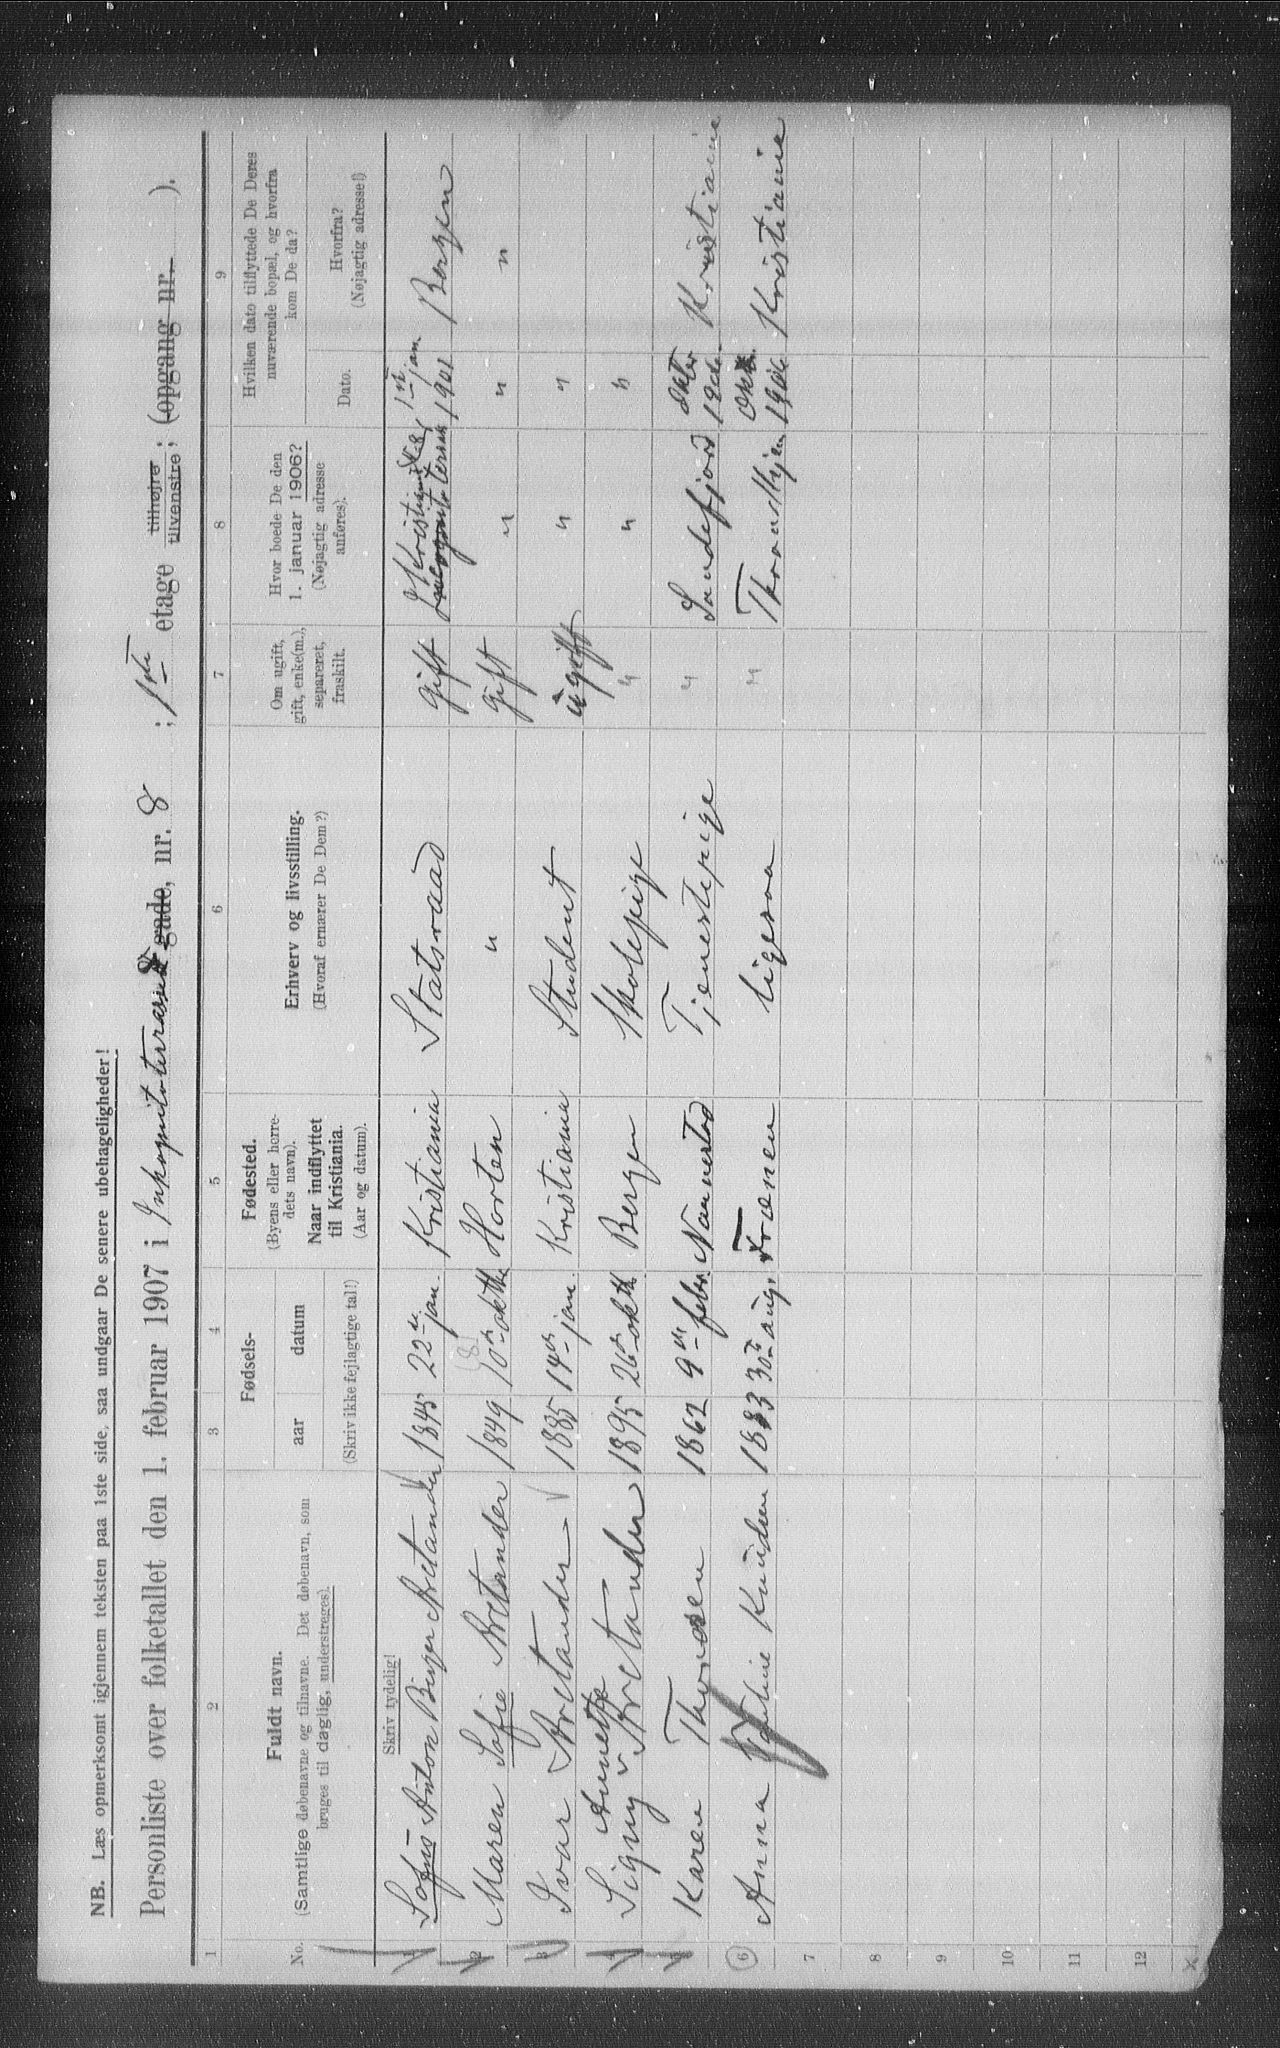 NB. Læs opmerksomt igjennem teksten paa 1ste side, saa undgaar De senere ubehageligheder!
Personliste over folketallet den 1. februar 1907 i Inkognitoterrasse gade, nr. 8 ; 1ste etage tilhøjre tilvenstre ; (opgang nr. ).
1 2 3 4 5 6 7 8 9
No.
Fuldt navn.
(Samtlige døbenavne og tilnavne. Det døbenavn, som
bruges til daglig, understreges).
Skriv tydelig!
Fødsels-
aar datum
(Skriv ikke fejlagtige tal!)
Fødested.
(Byens eller herre-
dets navn).
Naar indflyttet
til Kristiania.
(Aar og datum).
Erhverv og livsstilling.
(Hvoraf ernærer De Dem?)
Om ugift,
gift, enke(m.),
separeret,
fraskilt.
Hvor boede De den
1. januar 1906?
(Nøjagtig adresse
anføres).
Hvilken dato tilflyttede De Deres
nuværende bopæl, og hvorfra
kom De da?
Dato.
Hvorfra?
(Nøjagtig adresse!)
1 Sofus Anton Birger Arctander 1845 22 jan. Kristiania Statsraad gift Kristiania 1ste jan 1901 Bergen
2 Maren Sofie Arctander 1849 10 Horten " gift " " "
3 Ivar Arctander 1885 14 jan. Kristiania Student ugift " "
4 Signy Annette Arctander 1895 26 Bergen Skolepige " " "
5 Karen Thoresen 1862 9 febr. Nannestad Tjenestepige " Sandefjord 1906 Kristiania
6 Anna Knudsen 1883 30 aug. Trænen ligesaa " Throndhjem 1906 Kristiania
7
8
9
10
11
12
x